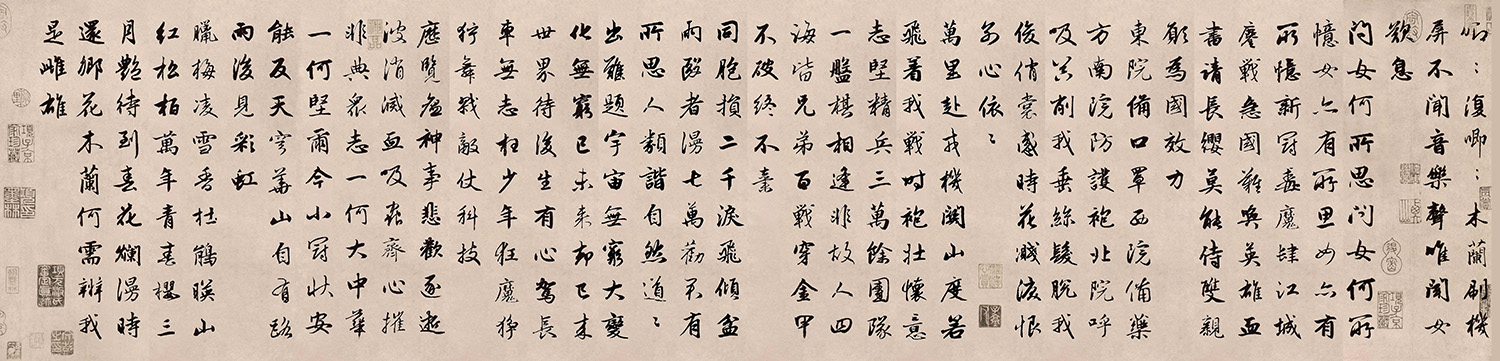 唧〻復唧〻木蘭刷機
屏不聞音樂聲唯聞女
歎息
問女何所思問女何所
憶女亦有所思女亦有
所憶新冠毒魔肆江城
鏖戰急國難興英雄血
書請長纓莫能侍雙親
願為國效力
東院備口罩西院備藥
方南院防護袍北院呼
吸器削我垂絲髮脫我
俊俏裳感時花濺淚恨
別心依〻
萬里赴戎機關山度若
飛着我戰時袍壯懷意
志堅精兵三萬餘團隊
一盤棋相逢非故人四
海皆兄弟百戰穿金甲
不破終不棄
同胞損二千淚飛傾盆
雨者漫七萬勸君有
所思人類諧自然道〻
出難題宇宙無窮大變
化無窮已未來却已來
世界待後生有心駕長
車無志枉少年狂魔猙
狞舞我敵仗科技
歷覽瘟神事悲歡逐逝
波消滅血吸蟲齊心摧
非典眾志一何大中華
一何堅爾今小冠狀安
能反天穹華山自有路
雨後見彩虹
臘梅凌雪香杜鵑映山
紅松柏萬年青春櫻三
月艷待到春花爛漫時
還鄉花木蘭何需辨我
是雌雄